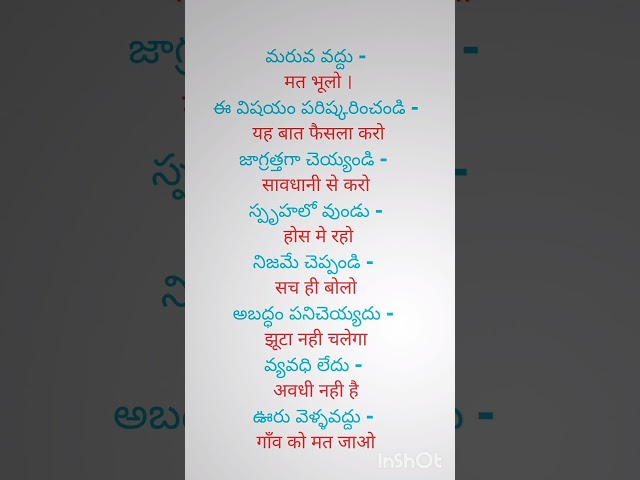 మరువ వద్దు -
मत भूलो ।
ఈ విషయం పరిష్కరించండి -
यह बात फैसला करो
జాగ్రత్తగా చెయ్యండి -
सावधानी से करो
స్పృహలో వుండు -
होस मे रहो
నిజమే చెప్పండి -
सच ही बोलो
అబద్ధం పనిచెయ్యదు -
झूटा नही चलेगा
వ్యవధి లేదు -
अवधी नही है
ఊరు వెళ్ళవద్దు -
गाँव को मत जाओ
InShOt